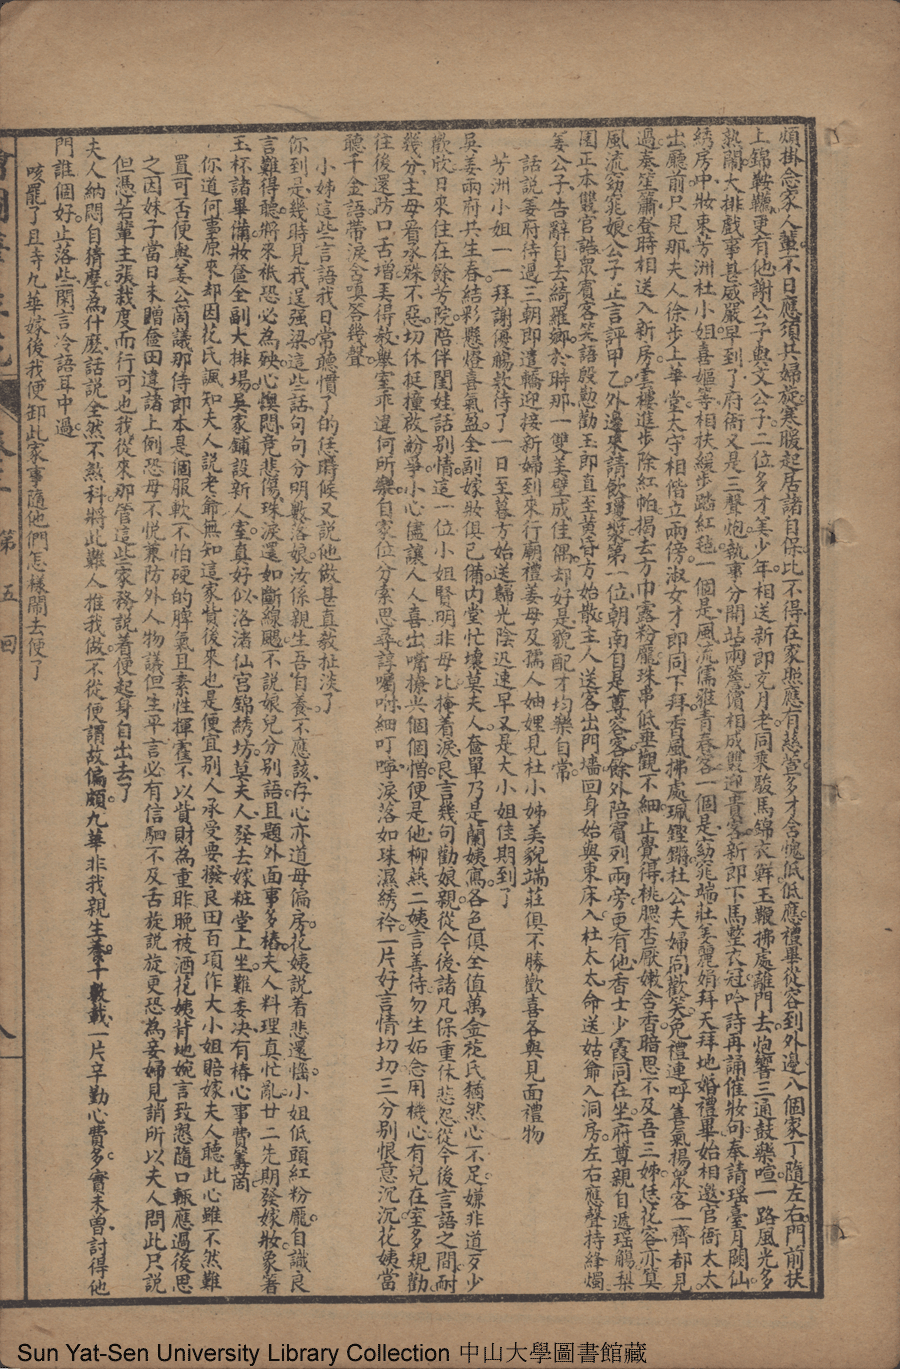 煩掛念家人輩不日應須共婦旋寒暖起居諸自保比不得在家照應有慈萱多才含愧低低應禮畢從容到外邊八個家丁隨左右門前扶
上錦鞍韉更有他謝公子與文公子二位多才美少年相送新郎克月老同乘駿馬錦衣鮮玉鞭拂處離門去炮響三通鼓樂喧一路風光多
熱鬧大排戲事甚威嚴早到了府衙又是三聲炮執事分開站兩簷儐相成雙迎貴客新郎下馬整衣冠吟詩再誦催妝句奉請瑤臺月闕仙
綉房中妝束芳洲杜小姐喜嫗等相扶緩步踏紅毡一個是風流儒雅青春客一個是窈窕端莊美麗娟拜天拜地婚禮畢始相邀官衙太太
出廳前只見那夫人徐步上華堂太守相偕立兩傍淑女才郎同下拜香風拂處珮鏗鏘杜公夫婦同歡笑免禮連呼喜氣揚衆客一齊都見
過奏笙簫登時相送入新房雲樓進步除紅帕揭去方巾露粉龐珠串低垂觀不細止覺得桃腮杏厭嫩含香暗思不及吾三姊恁花容亦算
風流窈窕娘公子正言評甲乙外邊來請飲瓊漿第一位朝南自是尊容客餘外陪賓列兩旁更有他香士少霞同在坐府尊親自遞瑶觴梨
園正本雙官誥衆賓客笑語殷勤勸玉郎直至黃昏方始散主人送客出門墻回身始與東床入杜太太命送姑爺入洞房左右應聲持絳燭
姜公子告辭自去綺羅鄉於時那一雙美璧成佳偶却好是貌配才均樂自常
話說姜府待過三朝即遣轎迎接新婦到來行廟禮姜母及孺人妯娌見杜小姊美貌端莊俱不勝歡喜各與見面禮物
芳洲小姐一一拜謝侮觴款待了一日至暮方始送歸光陰迅速早又是大小姐佳期到了
吳姜兩府共生春結彩懸燈喜氣盈全副嫁妝俱已備内堂忙壞莫夫人奩單乃是蘭姨寫各色俱全值萬金花氏猶然心不足嫌非道歹少
歡欣日來住在餘芳院陪伴閨娃話别情這一位小姐賢明非母比掩着淚良言幾句勸娘親從今後諸凡保重休悲怨從今後言語之間耐
幾分主母看承殊不惡切休挺撞啟紛爭小心儘讓人人喜出嘴撩共個個憎便是他柳燕二姨言善待勿生妬念用機心有兒在室多規勸
往後還防口舌增美得教舉室乖違何所樂自家位分索思尋諄囑咐細叮嚀淚落如珠濕綉衿一片好言情切切三分别恨意沉沉花姨當
聽千金語帶淚含嗔答幾聲
小姊這些言語我日常聽慣了的恁時候又說他做甚直教扯淡了
你到是幾時見我逞强梁這些話句句分明數落娘汝係親生吾自養不應該存心亦道母偏房花姨說着悲還惱小姐低頭紅粉龐自識良
言難得聽將來袛恐必為殃心懊悶竟悲傷珠淚還如斷線颺不說娘兒分别語且題外面事多樁夫人料理真忙亂廿二先期發嫁妝象箸
玉杯諸畢備妝奩全副大排場吳家鋪設新人室真好似洛渚仙宮錦綉坊莫夫人發去嫁粧堂上坐難委决有樁心事費籌啇
你道何事原來却因花氏諷知夫人說老爺無知這家貲後來也是便宜别人承受要撥良田百項作大小姐賠嫁夫人聽此心雖不然難
置可否便與姜公啇議那侍郎本是個服軟不怕硬的脾氣且素性揮霍不以貲財為重昨晚被酒花姨背地婉言致懇隨口輒應過後思
之因妹子當日未贈奩田違諸上例恐母不悅兼防外人物議但生平言必有信駟不及舌旋說旋更恐為妾婦見誚所以夫人問此只說
但憑若輩主張栽度而行可也我從來那管這些家務說着便起身自出去了
夫人納悶自猜摩為什麽話說全然不煞科將此難人推我做不從便謂故偏頗九華非我親生養十數載一片辛勤心費多實未曽討得他
門誰個好止落些閑言冷語耳中過
咳罷了且待九華嫁後我便卸此家事隨他們怎樣鬧去便了
第五回
八
Sun Yat-Sen University Library Collection 中山大學圖書館藏